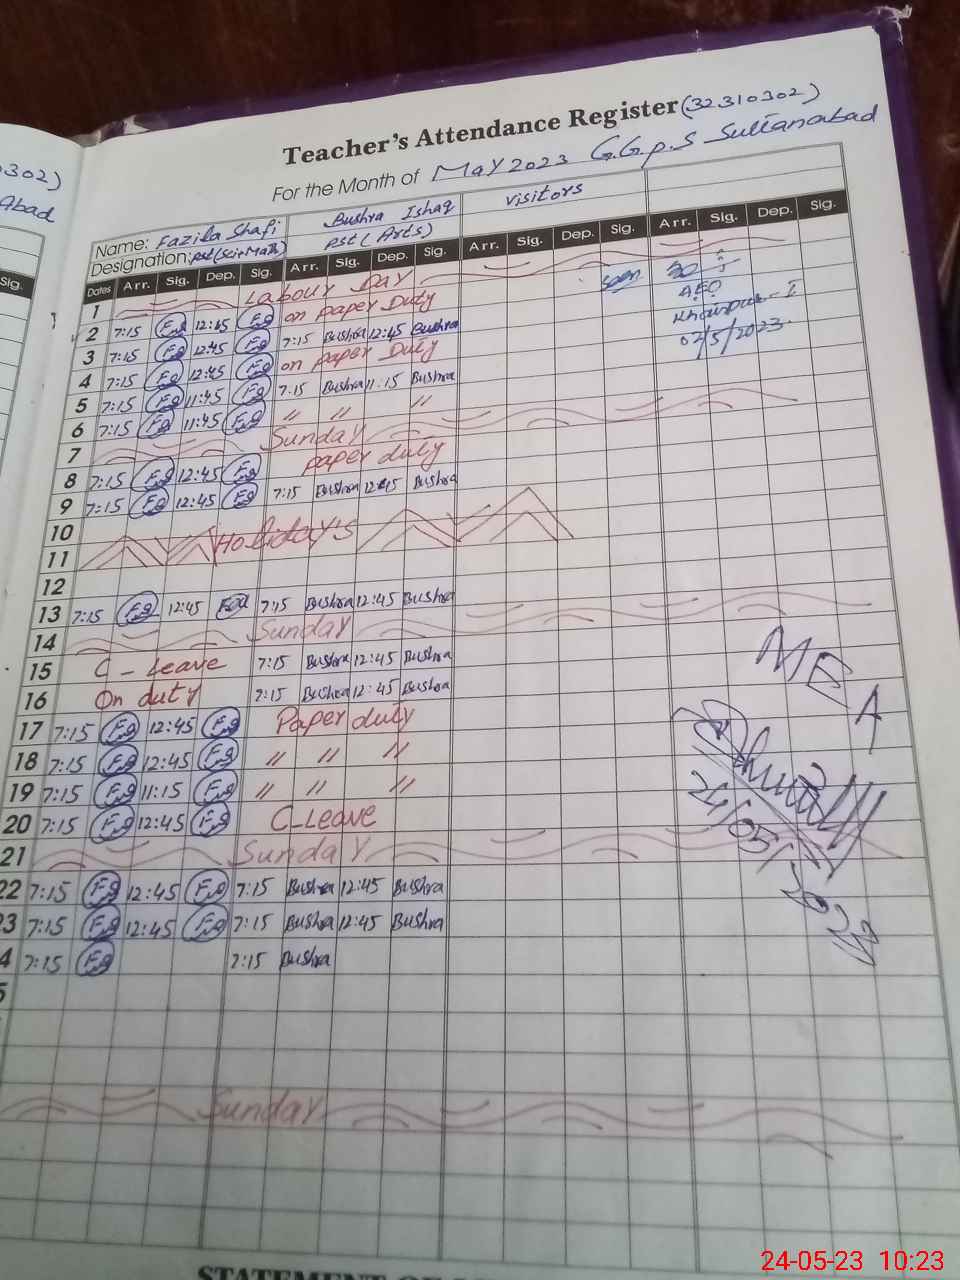 302)
Abad
Sig.
Teacher's Attendance Register (32310302)
For the Month of May 2023 G.G.P.S Sultanabad
Name: Fazila Shafi Bushra Ishaq visitors
Designation: pst(Sci+Math) pst (Arts)
Dates Arr. Sig. Dep. Sig. Arr. Sig. Dep. Sig. Arr. Sig. Dep. Sig. Arr. Sig. Dep. Sig.
1 Labour Day
2 7:15 12:45 on paper Duty
3 7:15 12:45 7:15 Bushra 12:45 Bushra
4 7:15 12:45 on paper Duty
5 7:15 11:45 7:15 Bushra 11:15 Bushra
6 7:15 11:45 // // //
7 Sunday
8 7:15 12:45 paper duty
9 7:15 12:45 7:15 Bushra 12:45 Bushra
10 Holiday's
11
12
13 7:15 12:45 7:15 Bushra 12:45 Bushra
14 Sunday
15 C-Leave 7:15 Bushra 12:45 Bushra
16 On duty 7:15 Bushra 12:45 Bushra
17 7:15 12:45 Paper duty
18 7:15 12:45 // // //
19 7:15 11:15 // // //
20 7:15 12:45 C-Leave
21 Sunday
22 7:15 12:45 7:15 Bushra 12:45 Bushra
23 7:15 12:45 7:15 Bushra 12:45 Bushra
4 7:15 7:15 Bushra
5
Sunday
seen
AEO
Khairpur-I
02/5/2023
MEA
24/05/2023
STATEMENT OF
24-05-23 10:23